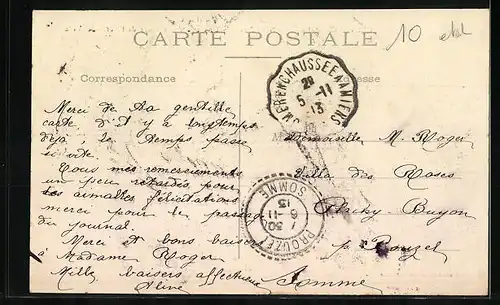 CARTE POSTALE
10
Correspondance
Adresse
MERENCHAUSSEE A AMIENS
2e
5 -11
13
Merci de ta gentille
carte d'il y a longtemps
déjà le temps passe
si vite.
Tous mes remerciements
un peu retardés pour
tes aimables félicitations
merci pour le passage
du journal.
Merci et bons baisers
à Madame Roger
Mille baisers affectueux
Aline
Mademoiselle M. Roger
Villa des Roses
Plachy-Buyon
par Prouzel
Somme
PROUZEL
7 30
6 -11
13
SOMME